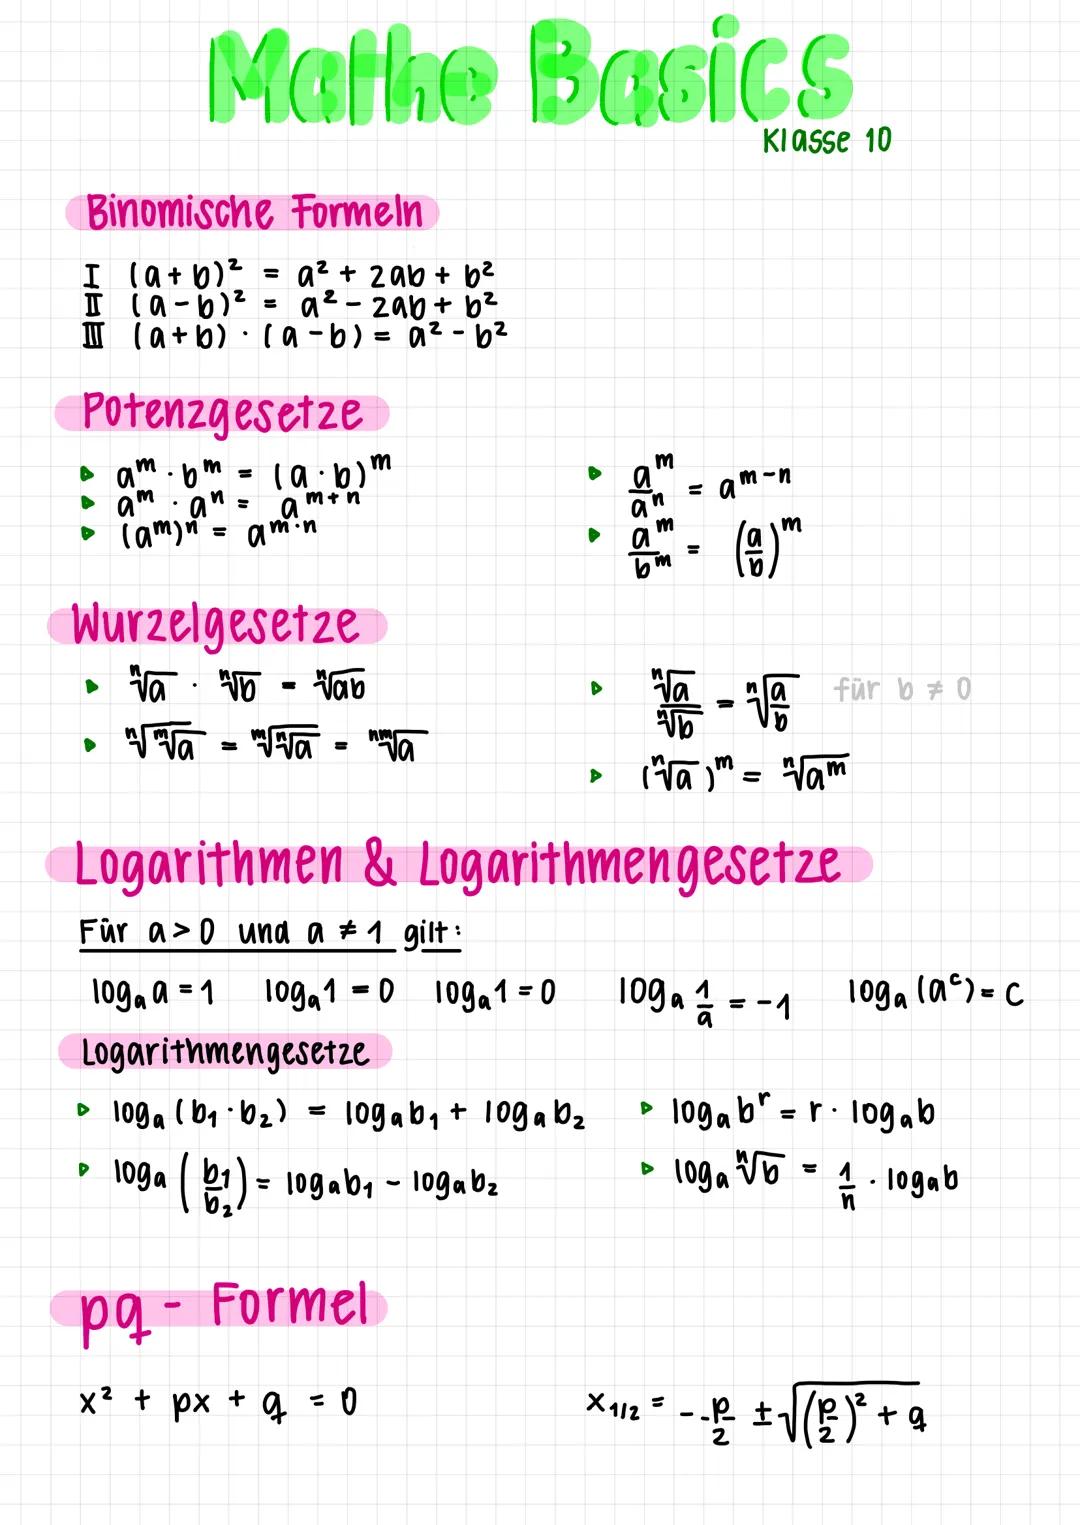 Mathe Basics
Klasse 10
Binomische Formeln
I (a+b)² = a² + 2ab + b²
II (a-b)² = a² - 2ab + b²
III (a+b) · (a-b) = a² - b²
Potenzgesetze
▸ aᵐ · bᵐ = (a·b)ᵐ
▸ aᵐ · aⁿ = aᵐ⁺ⁿ
▸ (aᵐ)ⁿ = a^(m·n)
▸ aᵐ/aⁿ = aᵐ⁻ⁿ
▸ aᵐ/bᵐ = (a/b)ᵐ
Wurzelgesetze
▸ ⁿ√a · ⁿ√b = ⁿ√ab
▸ ⁿ√ᵐ√a = ᵐ√ⁿ√a = ⁿᵐ√a
▸ ⁿ√a/ⁿ√b = ⁿ√(a/b) für b ≠ 0
▸ (ⁿ√a)ᵐ = ⁿ√aᵐ
Logarithmen & Logarithmengesetze
Für a>0 und a ≠ 1 gilt:
logₐ a = 1 logₐ 1 = 0 logₐ 1 = 0 logₐ 1/a = -1 logₐ (aᶜ) = c
Logarithmengesetze
▸ logₐ (b₁ · b₂) = logₐ b₁ + logₐ b₂
▸ logₐ (b₁/b₂) = logₐ b₁ - logₐ b₂
▸ logₐ bʳ = r · logₐ b
▸ logₐ ⁿ√b = 1/n · logₐ b
pq - Formel
x² + px + q = 0
x₁/₂ = --p/2 ± √((p/2)² + q)